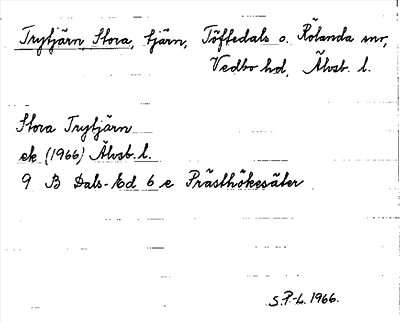 Trytjärn, Stora, tjärn, Töftedals o. Rölanda snr,
Vedbo hd, Älvsb. l.
Stora Trytjärn
ek (1966) Älvsb. l.
9 B Dals-Ed 6 e Prästhökesäter
S.P.-L. 1966.